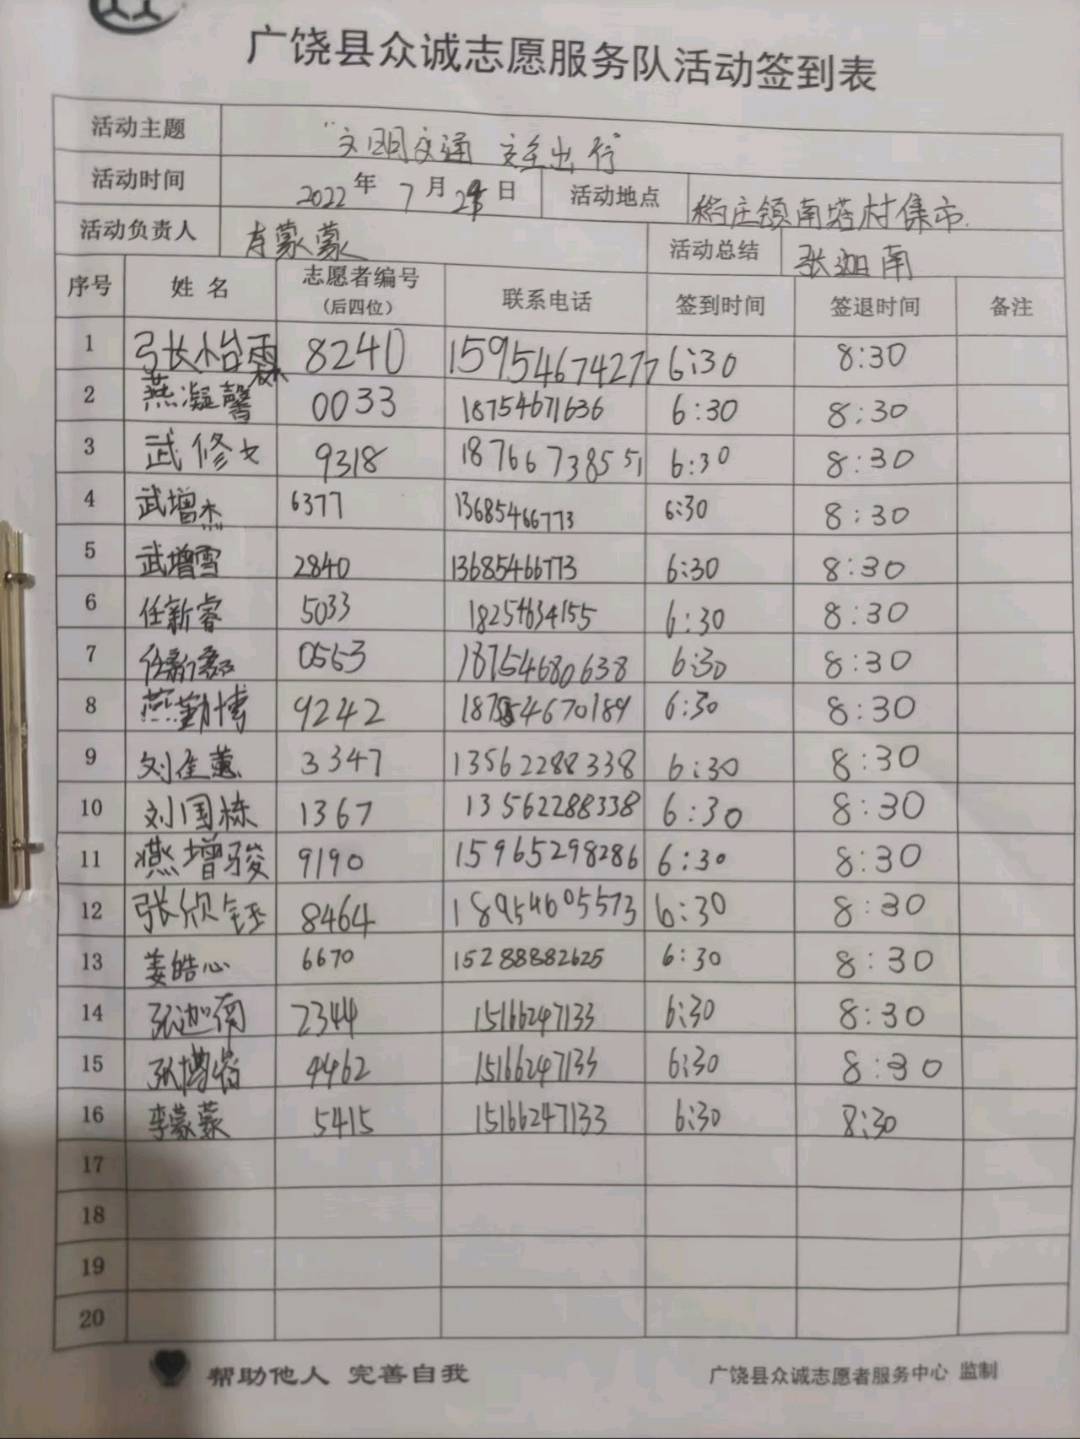 广饶县众诚志愿服务队活动签到表
活动主题 "文明交通 安全出行"
活动时间 2022年 7月 日 活动地点 镇南塔村集市.
活动负责人 李蒙蒙 活动总结 张迦南
序号 姓名 志愿者编号（后四位） 联系电话 签到时间 签退时间 备注
1 张怡霖 8240 15954674277 6:30 8:30
2 燕凝馨 0033 18754671636 6:30 8:30
3 武修文 9318 18766738551 6:30 8:30
4 武增杰 6377 13685466773 6:30 8:30
5 武增雪 2840 13685466773 6:30 8:30
6 任新睿 5033 18254634155 6:30 8:30
7 任新 0563 18754680638 6:30 8:30
8 燕勤博 9242 18754670189 6:30 8:30
9 刘佳蕙 3347 13562288338 6:30 8:30
10 刘国栋 1367 13562288338 6:30 8:30
11 燕增骏 9190 15965298286 6:30 8:30
12 张欣钰 8464 18954605573 6:30 8:30
13 姜皓心 6670 15288882625 6:30 8:30
14 张迦南 2344 15166247133 6:30 8:30
15 张博 4462 15166247133 6:30 8:30
16 李蒙蒙 5415 15166247133 6:30 8:30
17
18
19
20
帮助他人 完善自我 广饶县众诚志愿者服务中心 监制